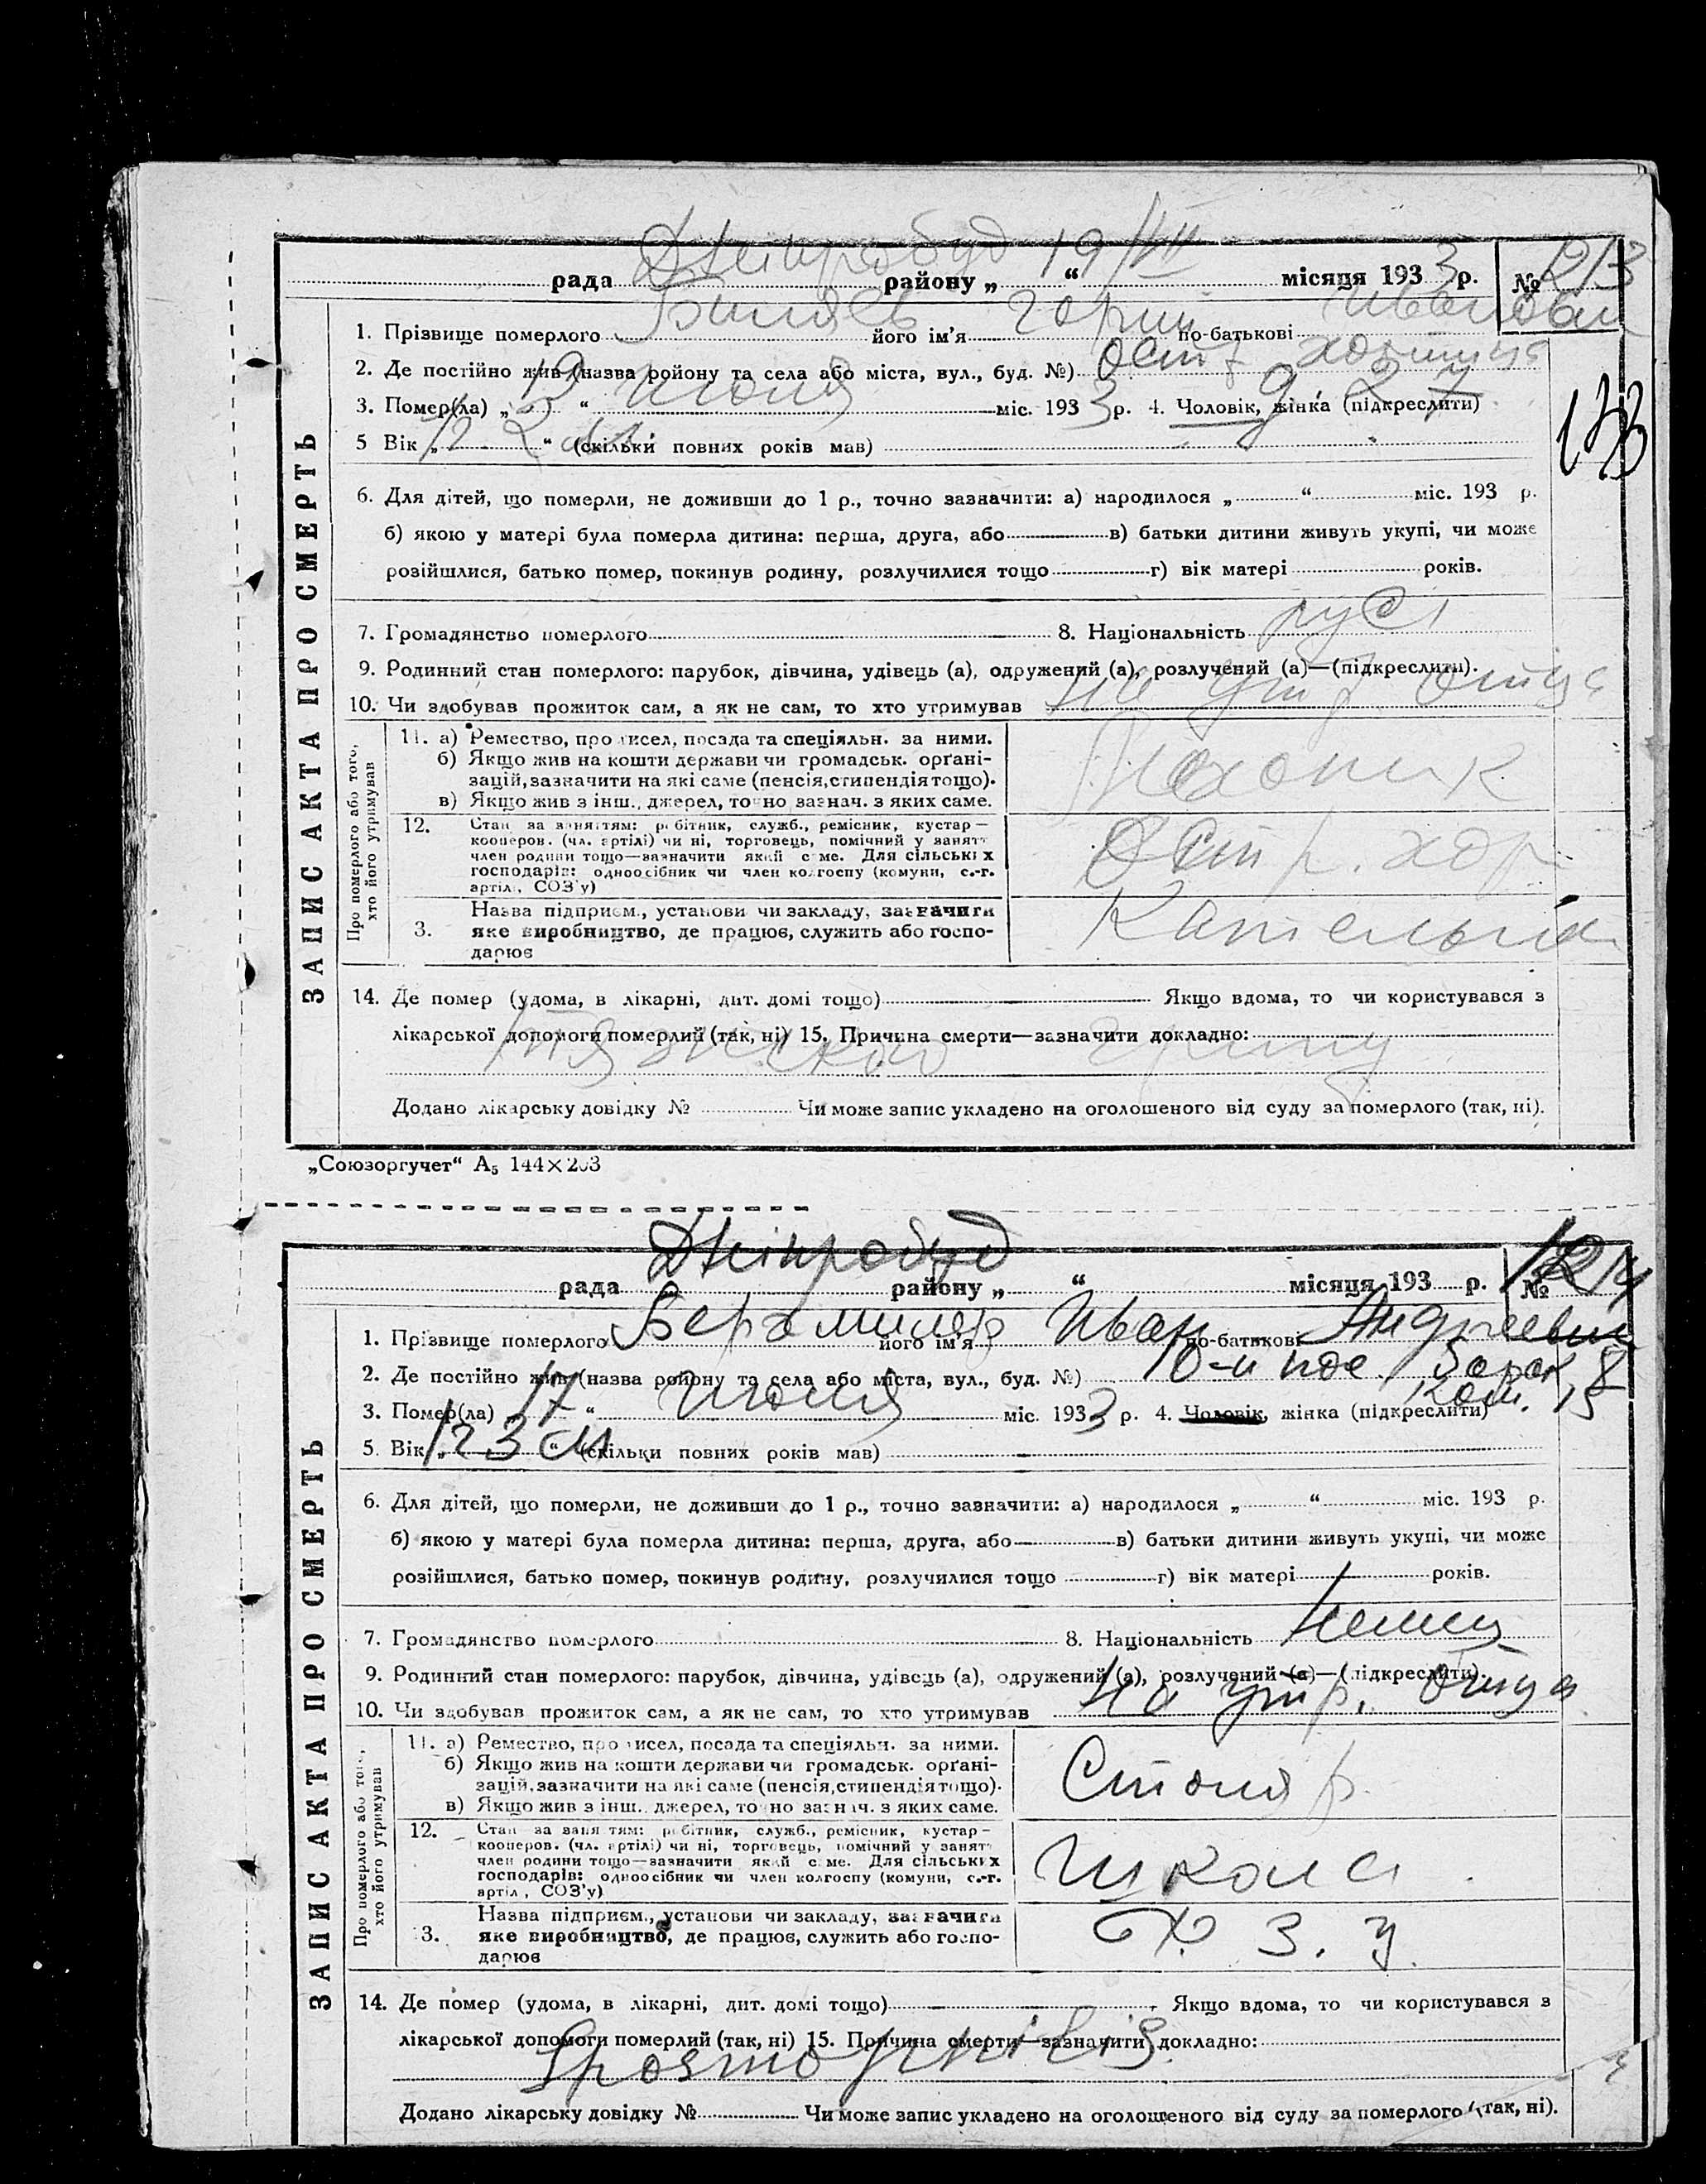 Дніпробуд 19 /VII
рада района „ “ місяця 1933 р. № 213
1. Прізвище померлого його ім'я по-батькові Иванович
2. Де постійно жив (назва району та села або міста, вул., буд. №) Остр хортица
3. Помер(ла) „19“ июля міс. 1933 р. 4. Чоловік, жінка (підкреслити)
133
5 Вік „ “ (скільки повних років мав)
6. Для дітей, що померли, не доживши до 1 р., точно зазначити: а) народилося „ “ міс. 193 р.
б) якою у матері була померла дитина: перша, друга, або в) батьки дитини живуть укупі, чи може
розійшлися, батько помер, покинув родину, розлучилися тощо г) вік матері років.
7. Громадянство померлого 8. Національність русс
9. Родинний стан померлого: парубок, дівчина, удівець (а), одружений (а), розлучений (а)—(підкреслити).
10. Чи здобував прожиток сам, а як не сам, то хто утримував на утр отца
11. а) Ремество, промисел, посада та спеціяльн. за ними.
б) Якщо жив на кошти держави чи громадськ. орґані-
зацій, зазначити на які саме (пенсія, стипендія тощо).
в) Якщо жив з інш. джерел, точно зазнач. з яких саме.
12. Стан за заняттям: робітник, служб., ремісник, кустар—
кооперов. (чл. артілі) чи ні, торговець, помічний у занятт
член родини тощо—зазначити який саме. Для сільських
господарів: одноосібник чи член колгоспу (комуни, с.-г.
артіл, СОЗ'у)
Остр. хор
3. Назва підприєм., установи чи закладу, зазначити
яке виробництво, де працює, служить або госпо-
дарює
Про померлого або того,
хто його утримував
ЗАПИС АКТА ПРО СМЕРТЬ
14. Де помер (удома, в лікарні, дит. домі тощо) Якщо вдома, то чи користувався з
лікарської допомоги померлий (так, ні) 15. Причина смерти—зазначити докладно:
Додано лікарську довідку № Чи може запис укладено на оголошеного від суду за померлого (так, ні).
„Союзоргучет“ А₅ 144×203
Дніпробуд
рада району „ “ місяця 193 р. № 214
1. Прізвище померлого його ім'я Иван по-батькові Андреевич
2. Де постійно жив (назва району та села або міста, вул., буд. №) 10-и пос. Барак 8
ком. 15
3. Помер(ла) „17“ июля міс. 1933 р. 4. Чоловік, жінка (підкреслити)
5. Вік „1 г 3 м“ (скільки повних років мав)
6. Для дітей, що померли, не доживши до 1 р., точно зазначити: а) народилося „ “ міс. 193 р.
б) якою у матері була померла дитина: перша, друга, або в) батьки дитини живуть укупі, чи може
розійшлися, батько помер, покинув родину, розлучилися тощо г) вік матері років.
7. Громадянство померлого 8. Національність немец
9. Родинний стан померлого: парубок, дівчина, удівець (а), одружений (а), розлучений (а)—(підкреслити).
10. Чи здобував прожиток сам, а як не сам, то хто утримував на утр. отца
11. а) Ремество, промисел, посада та спеціяльн. за ними.
б) Якщо жив на кошти держави чи громадськ. орґані-
зацій, зазначити на які саме (пенсія, стипендія тощо).
в) Якщо жив з інш. джерел, точно зазнач. з яких саме.
Столяр
12. Стан за заняттям: робітник, служб., ремісник, кустар—
кооперов. (чл. артілі) чи ні, торговець, помічний у занятт
член родини тощо—зазначити який саме. Для сільських
господарів: одноосібник чи член колгоспу (комуни, с.-г.
артіл, СОЗ'у)
Школа
3. Назва підприєм., установи чи закладу, зазначити
яке виробництво, де працює, служить або госпо-
дарює
Ф. З. У.
Про померлого або того,
хто його утримував
ЗАПИС АКТА ПРО СМЕРТЬ
14. Де помер (удома, в лікарні, дит. домі тощо) Якщо вдома, то чи користувався з
лікарської допомоги померлий (так, ні) 15. Причина смерти—зазначити докладно:
Додано лікарську довідку № Чи може запис укладено на оголошеного від суду за померлого (так, ні).